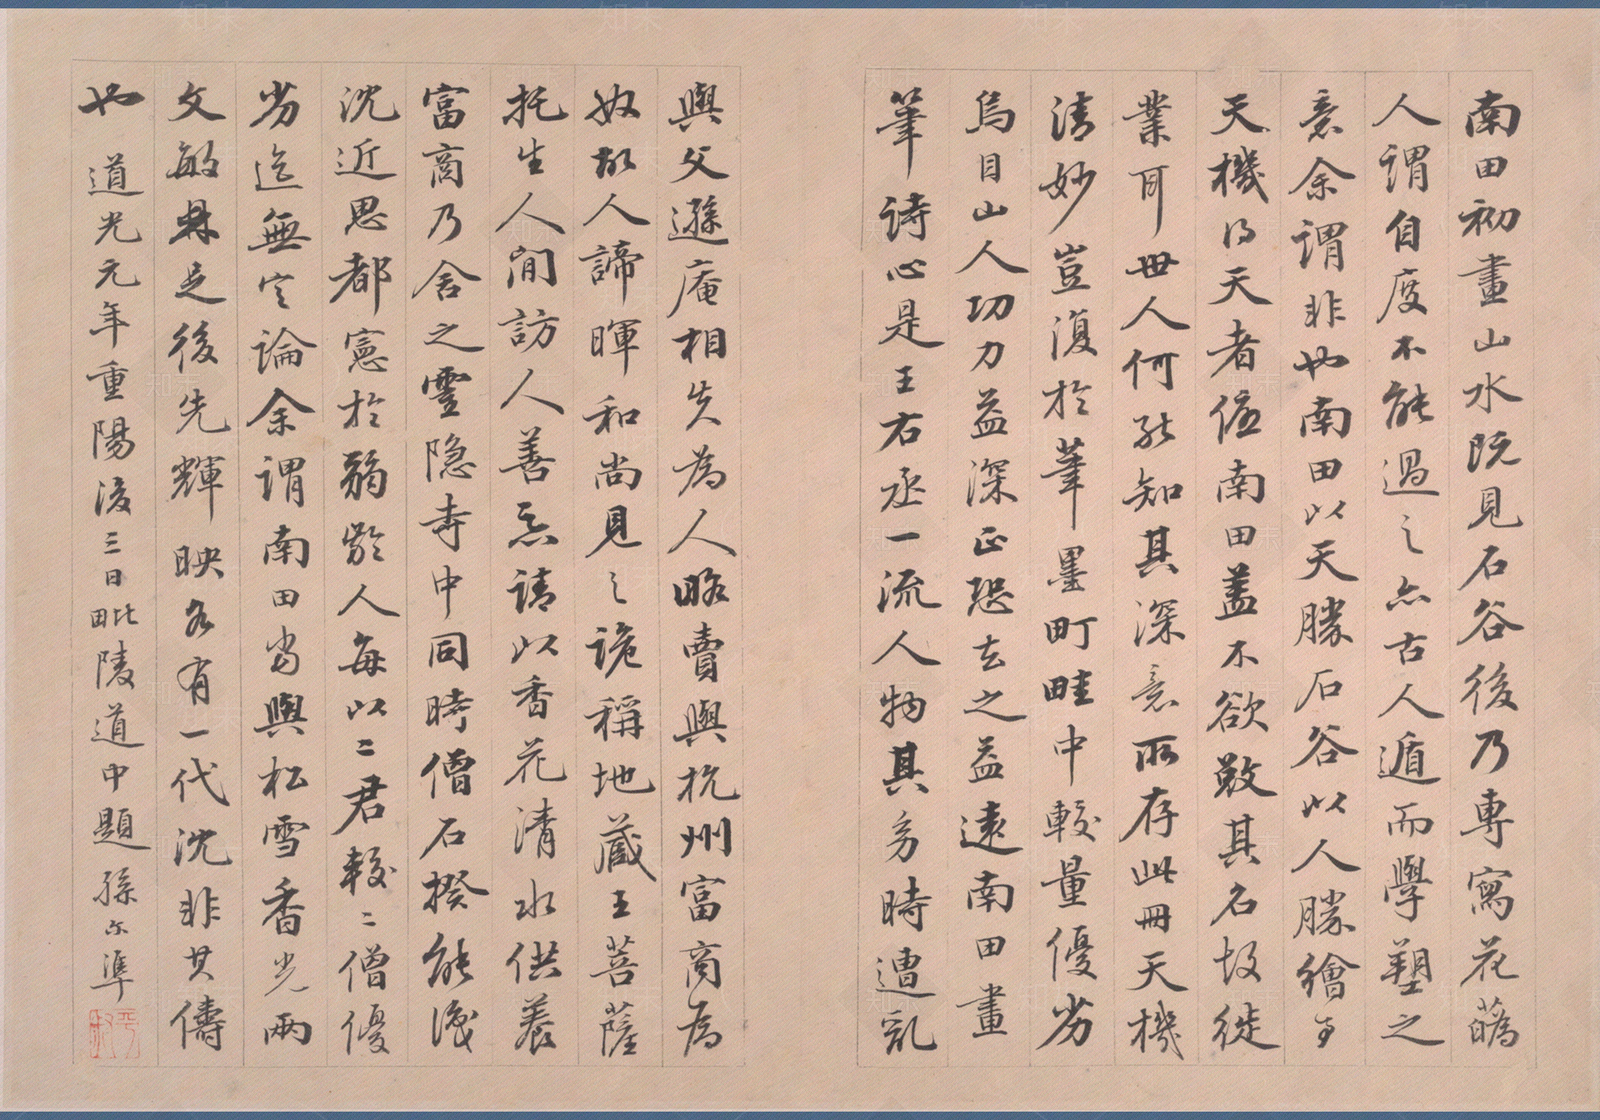 南田初畫山水既見石谷後乃專寫花蘤
人謂自度不能過之亦古人遁而學塑之
意余謂非也南田以天勝石谷以人勝繪事
天機得天者優南田蓋不欲敵其名故徙
業耳世人何能知其深意所存此冊天機
清妙豈復於筆墨町畦中較量優劣
烏目山人功力益深正恐去之益遠南田畫
筆詩心是王右丞一流人物其少時遭亂
與父遜庵相失為人略賣與杭州富商為
奴故人諦暉和尚見之詭稱地藏王菩薩
托生人間訪人善惡請以香花清水供養
富商乃舍之靈隱寺中同時僧石揆能識
沈近思都憲於弱齡人每以二君較二僧優
劣迄無定論余謂南田當與松雪香光兩
文敏鼎足後先輝映各有一代沈非其儔
也 道光元年重陽後三日毗陵道中題孫爾準